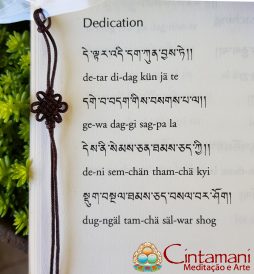 Dedication
དེ་ལྟར་འདི་དག་ཀུན་བྱས་ཏེ།།
de-tar di-dag kün jä te
དགེ་བ་བདག་གིས་བསགས་པ་ལ།།
ge-wa dag-gi sag-pa la
དེས་ནི་སེམས་ཅན་ཐམས་ཅད་ཀྱི།།
de-ni sem-chän tham-chä kyi
སྡུག་བསྔལ་ཐམས་ཅད་བསལ་བར་ཤོག།
dug-ngäl tam-chä säl-war shog
Cintamani
Meditação e Arte